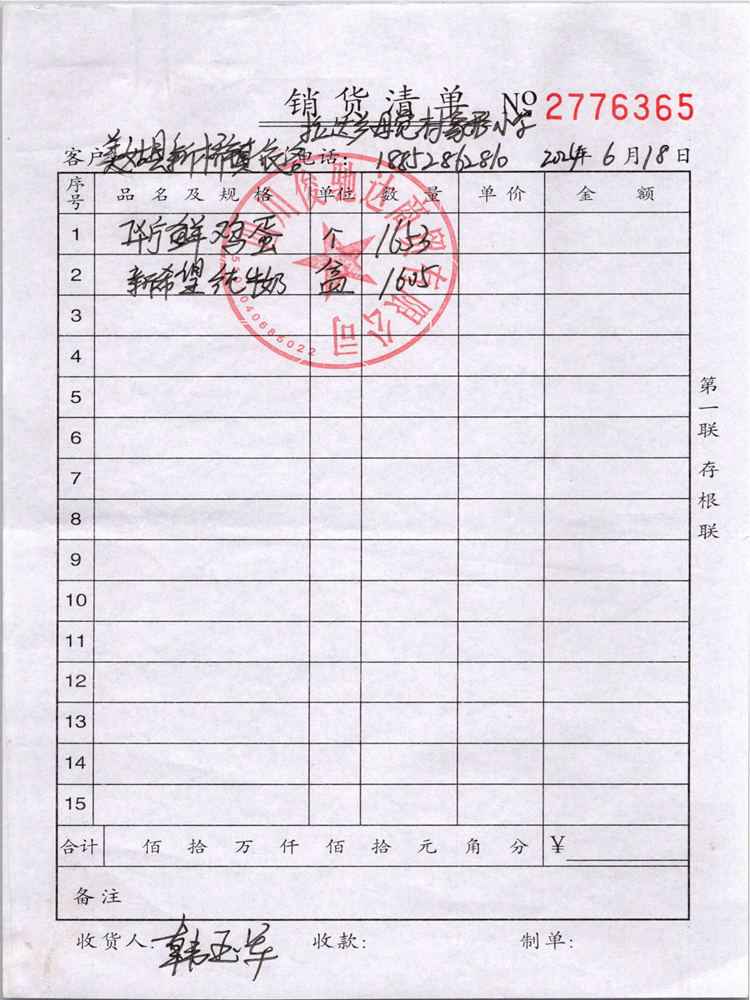 销货清单 № 2776365
客户:美姑县新桥镇 电话: 18852862810 2024年 6月18日
序号 品名及规格 单位 数量 单价 金额
1 鲜鸡蛋 个 1653
2 新希望纯牛奶 盒 1605
3
4
5
6
7
8
9
10
11
12
13
14
15
合计 佰拾万仟佰拾元角分 ¥
备注
收货人: 韩玉军 收款: 制单:
第一联 存根联
川俊驰达商贸有限公司